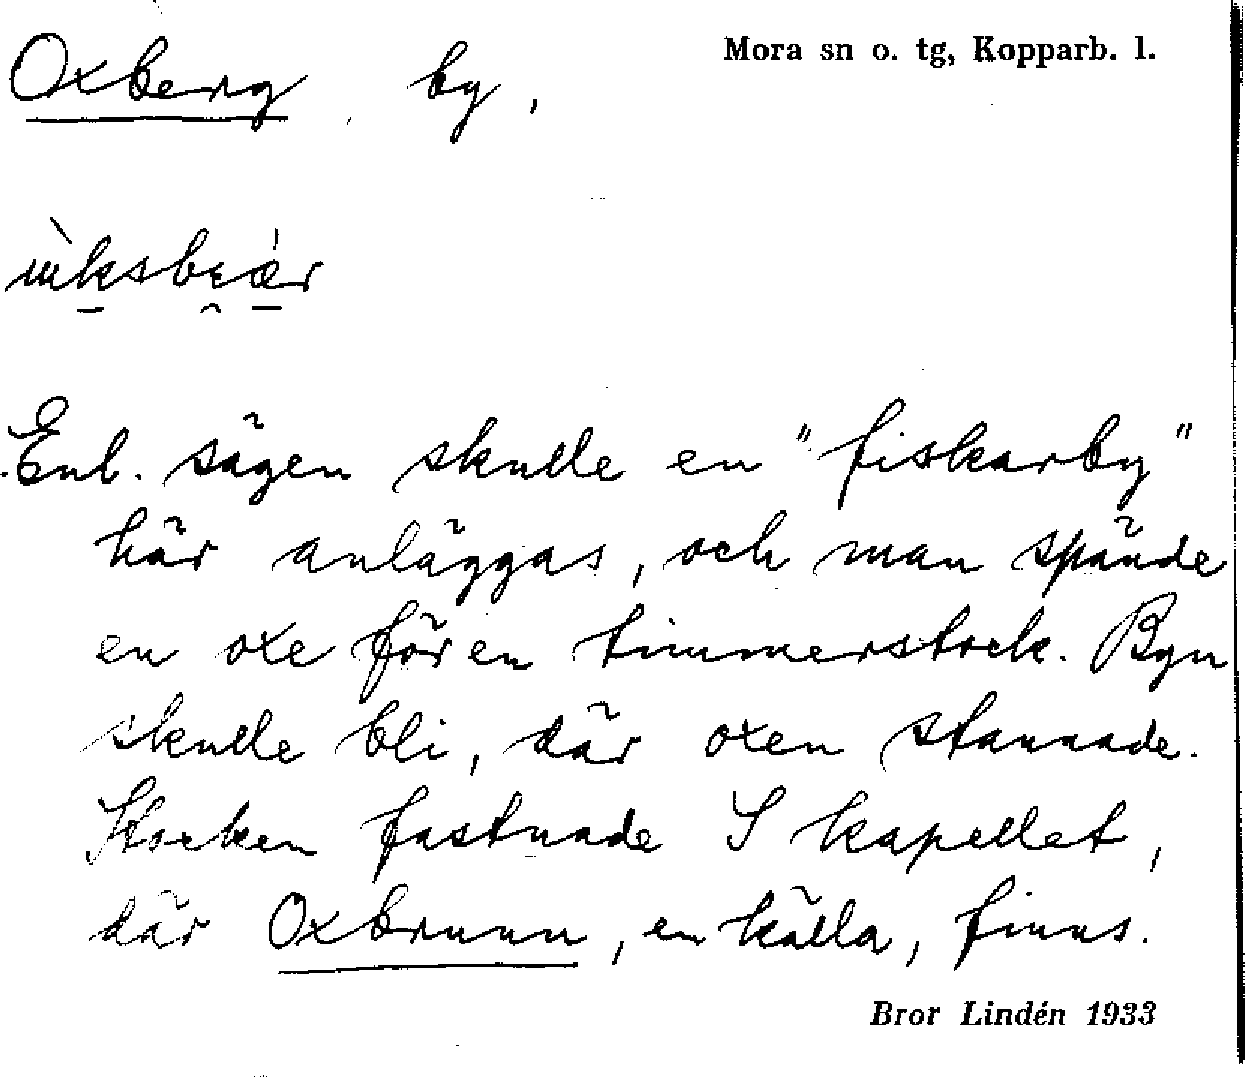 Oxberg, by,
Mora sn o. tg, Kopparb. l.
Enl. sägen skulle en "fiskarby"
här anläggas, och man spände
en oxe för en timmerstock. Byn
skulle bli, där oxen stannade.
Stocken fastnade S kapellet,
där Oxbrunn, en källa, finns.
Bror Lindén 1933